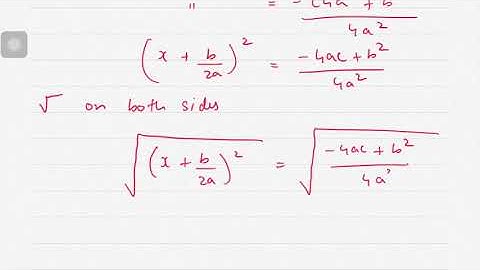 " = -4ac + b² / 4a²
(x + b/2a)² = -4ac + b² / 4a²
√ on both sides
√(x + b/2a)² = √-4ac + b² / 4a²